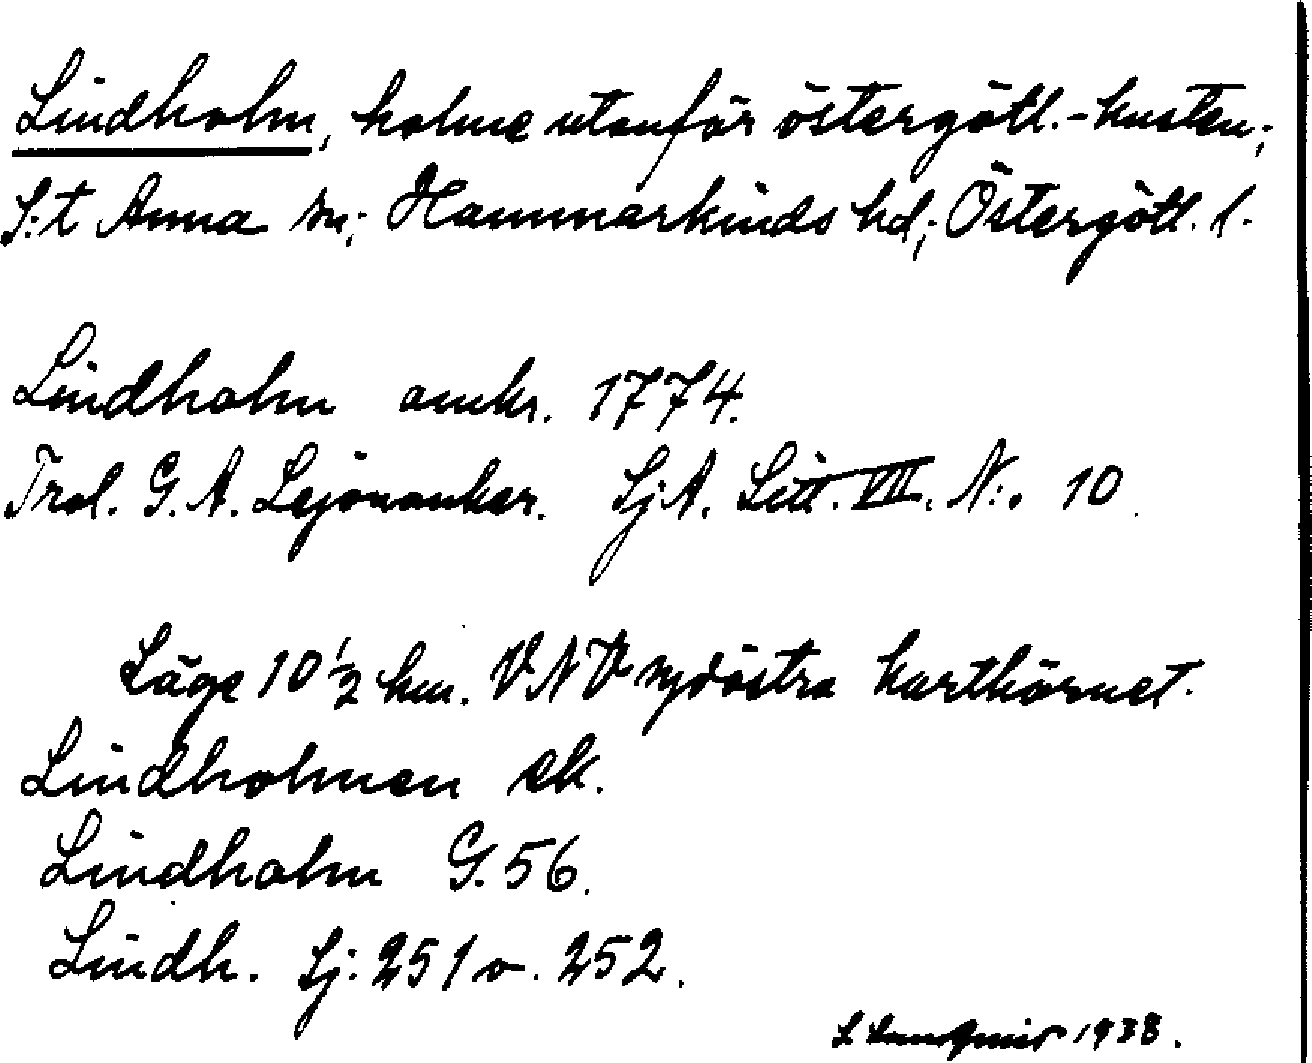 Lindholm, holme utanför östergötl.-kusten;
S:t Anna sn; Hammarkinds hd; Östergötl. l.
Lindholm omkr. 1774.
Trol. G. A. Lejonankar. SjA. Litt. VIII. N:o 10.
Läge 10 1/2 km. VNV sydöstra karthörnet.
Lindholmen ek.
Lindholm G. 56.
Lindh. Sj: 251 o. 252.
1938.